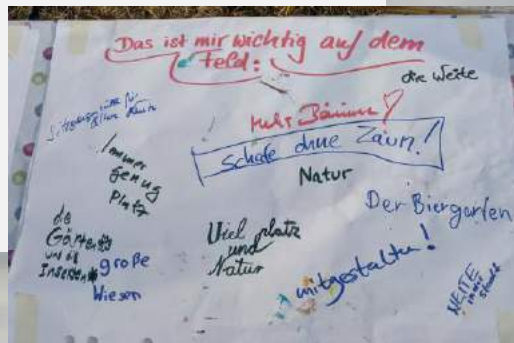 Das ist mir wichtig auf dem
Feld:
die Weite
Sitzgelegenheiten für
ältere Leute
Mehr Bäume
Schafe ohne Zaun!
Immer
genug
Platz
Natur
Der Biergarten
die
Gärten
und die
Insekten
große
Wiesen
Viel platz
und
Natur
mitgestalten!
WEITE
in der
Stadt